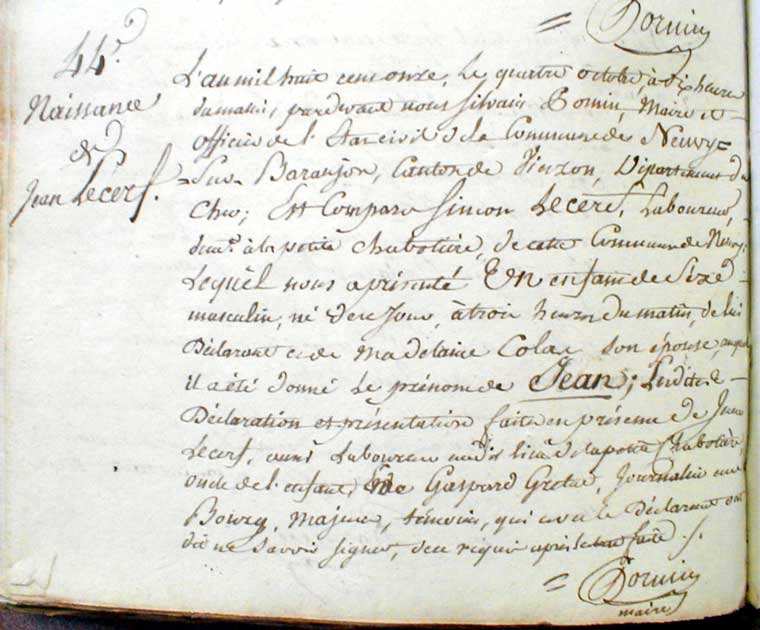 44e.
Naissance
de
Jean Lecerf.
L'an mil huit cent onze, Le quatre octobre, à dix heures
du matin, pardevant nous Silvain Dornin, Maire et
officier de l'Etat civil de la Commune de Neuvy =
= Sur Baranjon, Canton de Vierzon, Département du
Cher; Est Comparu Simon Lecerf, Laboureur,
demt. à la petite Chabotière, de cette Commune de Neuvy;
Lequel nous a présenté Un enfant de Sexe
masculin, né de ce Jour, à trois heures du matin, de lui
Déclarant et de Madelaine Colas son épouse, auquel
il a été donné Le prénom de Jean; Ladite
Déclaration et présentation faite en présence de Jean
Lecerf, aussi Laboureur audit lieu de la petite Chabotière,
oncle de l'enfant, de Gaspard , Journalier en ce
Bourg, majeurs, témoins, qui avec le Déclarant ont
dit ne Savoir signer, de ce requis après lecture faite ./.
= Dornin
maire
= Dornin